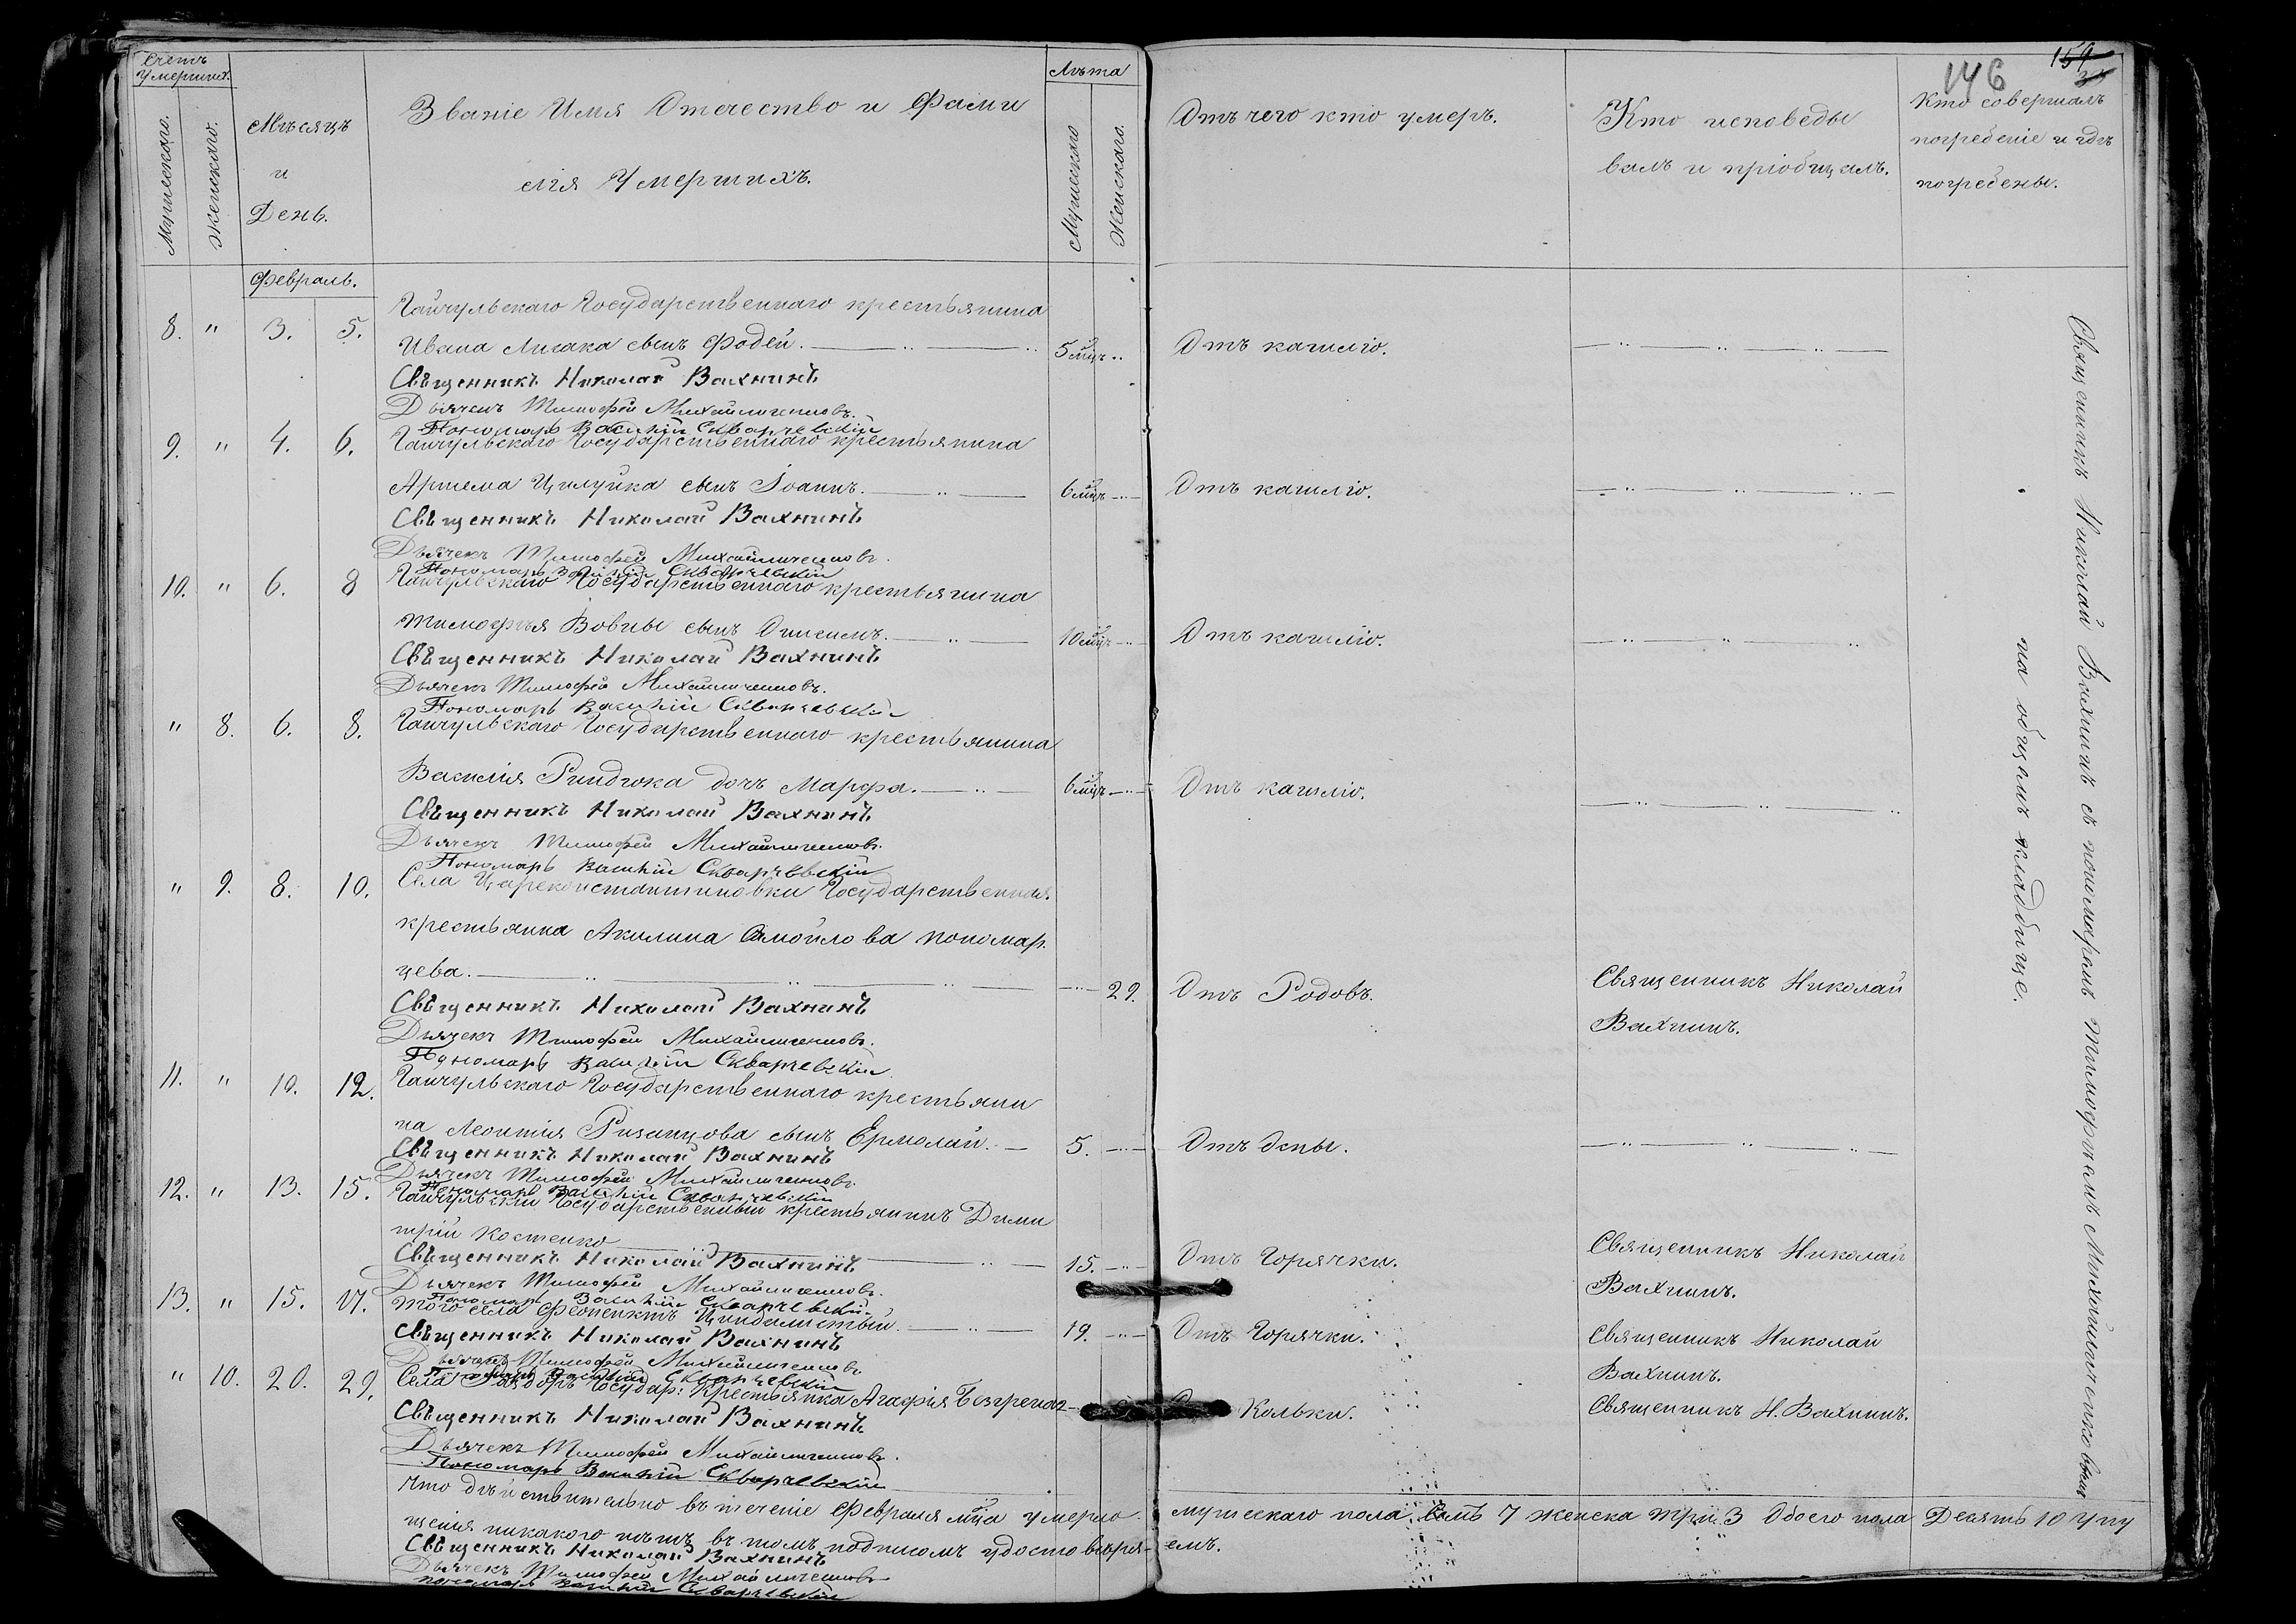 Счетъ умершихъ.
Мужескаго.
Женскаго.
Мѣсяцъ
и
День.
Званіе Имя Отечество и Фами
лія Умершихъ.
Лѣта
Мужескаго
Женскаго.
Отъ чего кто умеръ.
Кто исповеды
валъ и пріобщалъ.
Кто совершалъ
погребеніе и гдѣ
погребены.
146
159
Февраль.
Гайчульскаго Государственнаго крестьянина
8. " 3. 5. Ивана сынъ Фодей. 5 мцъ Отъ кашлю.
Священникъ Николай Вахнинъ
Дьячекъ Тимофей Михайличенковъ.
Пономарь Василій Скварчевскій
9. " 4. 6. Гайчульскаго Государственнаго крестьянина
Артема Цилуйка сынъ Іоаннъ. 6 мцъ Отъ кашлю.
Священникъ Николай Вахнинъ
Дьячекъ Тимофей Михайличенковъ.
Пономарь Василій Скварчевскій
10. " 6. 8 Гайчульскаго Государственнаго крестьянина
Тимофѣя Вовны сынъ Онисимъ. 10 мцъ Отъ кашлю.
Священникъ Николай Вахнинъ
Дьячекъ Тимофей Михайличенковъ.
Пономарь Василій Скварчевскій
" 8. 6. 8. Гайчульскаго Государственнаго крестьянина
Василія Риндюка дочь Марфа. 6 мцъ Отъ кашлю.
Священникъ Николай Вахнинъ
Дьячекъ Тимофей Михайличенковъ.
Пономарь Василій Скварчевскій
" 9. 8. 10. Села Цареконстантиновки Государственная
крестьянка Акилина Самойлова пономар
цева. 29. Отъ Родовъ. Священникъ Николай
Вахнинъ.
Священникъ Николай Вахнинъ
Дьячекъ Тимофей Михайличенковъ.
Пономарь Василій Скварчевскій
11. " 10. 12. Гайчульскаго Государственнаго крестьяни
на Леонтія Ризанцова сынъ Ермолай. 5. Отъ Оспы.
Священникъ Николай Вахнинъ
Дьячекъ Тимофей Михайличенковъ.
Пономарь Василій Скварчевскій
12. " 13. 15. Гайчульскій Государственный крестьянинъ Дими
трій Костенко 15. Отъ Горячки. Священникъ Николай
Вахнинъ.
Священникъ Николай Вахнинъ
Дьячекъ Тимофей Михайличенковъ.
Пономарь Василій Скварчевскій
13. " 15. 17. Того села 19. Отъ Горячки. Священникъ Николай
Вахнинъ.
Священникъ Николай Вахнинъ
Дьячекъ Тимофей Михайличенковъ
Пономарь Василій Скварчевскій
" 10. 20. 29. Села Государ: крестьянка Агафія Кольки. Священникъ Н. Вахнинъ.
Священникъ Николай Вахнинъ
Дьячекъ Тимофей Михайличенковъ.
Пономарь Василій Скварчевскій
Что дѣйствительно въ теченіе Февраля мца умерло мужескаго пола Семъ 7 женска три 3 Обоего пола Десять 10 упу
щенія никакого нѣтъ въ томъ подписомъ удостовѣря-емъ.
Священникъ Николай Вахнинъ
Дьячекъ Тимофей Михайличенковъ
пономарь Василій Скварчевскій
Священникъ Николай Вахнинъ съ пономаремъ Тимофѣемъ Михайличенковымъ
на общемъ кладбище.